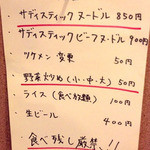 サディスティック ヌードル 850円
サディスティック ビーフヌードル 900円
ツケメン 変更 50円
野菜炒め(小・中・大) 50円
ライス (食べ放題) 100円
生ビール 400円
食べ残し厳禁!!